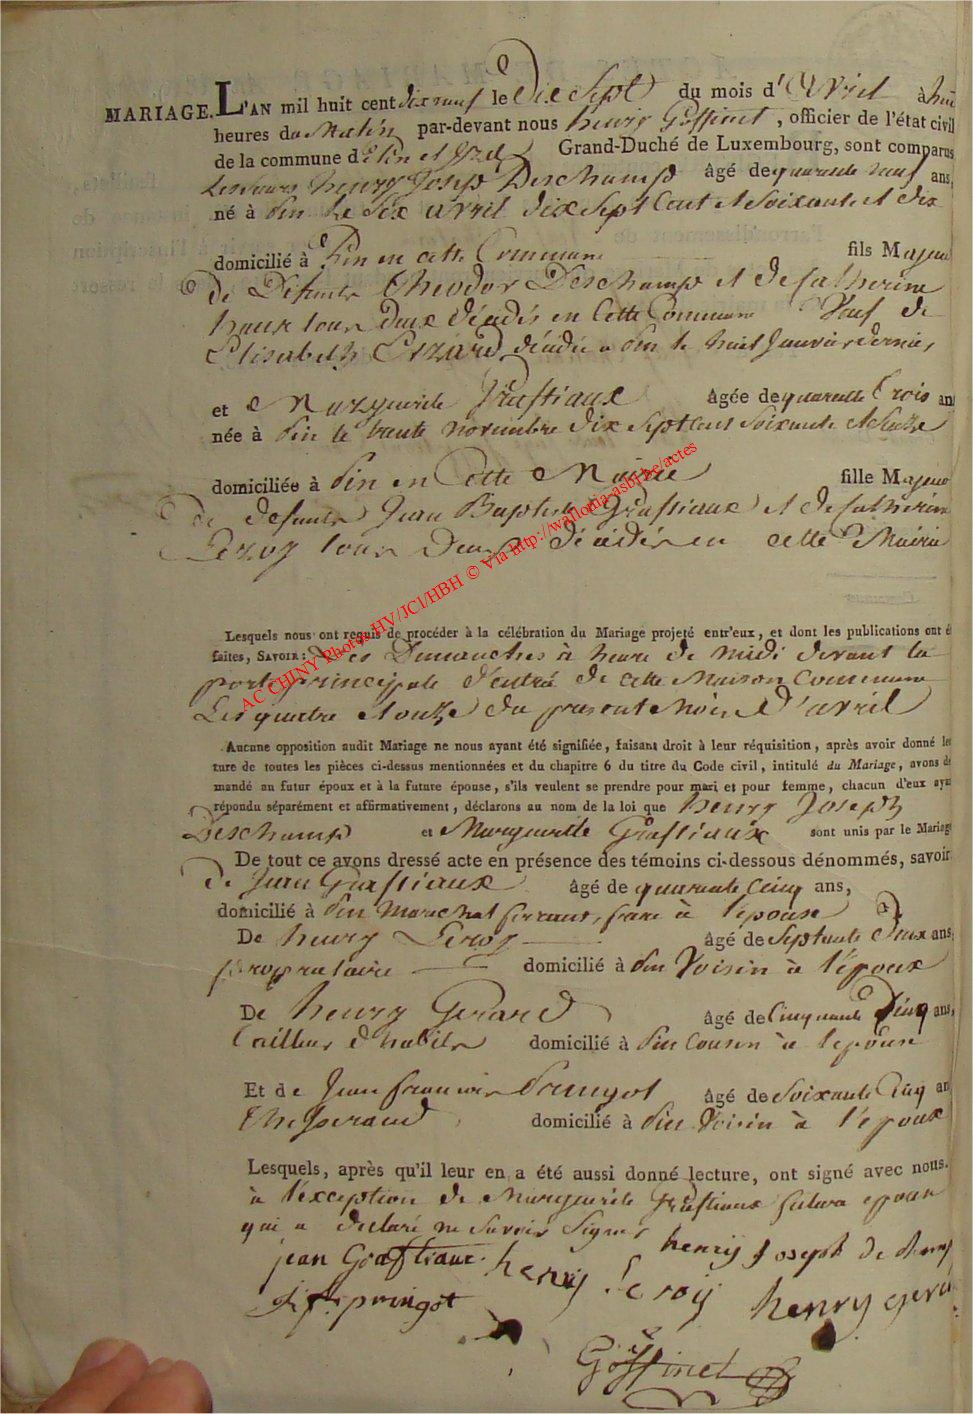 MARIAGE. L'AN mil huit cent dix neuf le Dix Sept du mois d'Avril à huit
heures du Matin par-devant nous henry Goffinet, officier de l'état civil
de la commune d Pin et Izel Grand-Duché de Luxembourg, sont comparus
Les Sieurs henry Joseph Deschamps âgé de quarante neuf ans,
né à Pin Le Six avril dix Sept Cent et Soixante et dix
domicilié à Pin en cette Commune fils Majeur
De Défunts Theodor Deschamps et de Catherine
tous Deux décédés en Cette Commune Veuf de
Elisabeth décédée a Pin le huit Janvier dernier,
et Marguerite Grastiaux âgée de quarante Trois ans
née à Pin le trente novembre dix Sept Cent Soixante et
domiciliée à Pin en Cette Mairie fille Majeur
De defunts Jean Baptiste Grastiaux et de Catherine
Leroy tous Deux décédés en cette Mairie
Lesquels nous ont requis de procéder à la célébration du Mariage projeté entr'eux, et dont les publications ont é
faites, SAVOIR: Les Dimanches à heure de midi devant la
porte principale d'entrée de cette Maison Commune
Les quatre et onze du présent Mois d'avril
Aucune opposition audit Mariage ne nous ayant été signifiée, faisant droit à leur réquisition, après avoir donné lec
ture de toutes les pièces ci-dessus mentionnées et du chapitre 6 du titre du Code civil, intitulé du Mariage, avons de
mandé au futur époux et à la future épouse, s'ils veulent se prendre pour mari et pour femme, chacun d'eux ayan
répondu séparément et affirmativement, déclarons au nom de la loi que henry Joseph
Deschamps et Marguerite Grastiaux sont unis par le Mariage
De tout ce avons dressé acte en présence des témoins ci-dessous dénommés, savoir
de Jean Grastiaux âgé de quarante Cinq ans,
domicilié à Pin Marechal ferrant, frere à l'épouse
De henry Leroy âgé de Septante Deux ans,
propriétaire domicilié à Pin Voisin à l'époux
De henry Gerard âgé de Cinquante Cinq ans,
Tailleur d'habits domicilié à Pin Cousin à l'époux
Et de Jean francois Pringot âgé de Soixante Cinq an
Thisserand domicilié à Pin Voisin à l'époux
Lesquels, après qu'il leur en a été aussi donné lecture, ont signé avec nous.
à l'exception de Marguerite Grastiaux future epouse
qui a declaré ne Savoir Signer
jean Grastiaux henry Leroy henrij Joseph de champ
J f pringot henry gera
Goffinet
AC CHINY Photos HV/JCl/HBH © Via http://wallonia-asbl.be/actes